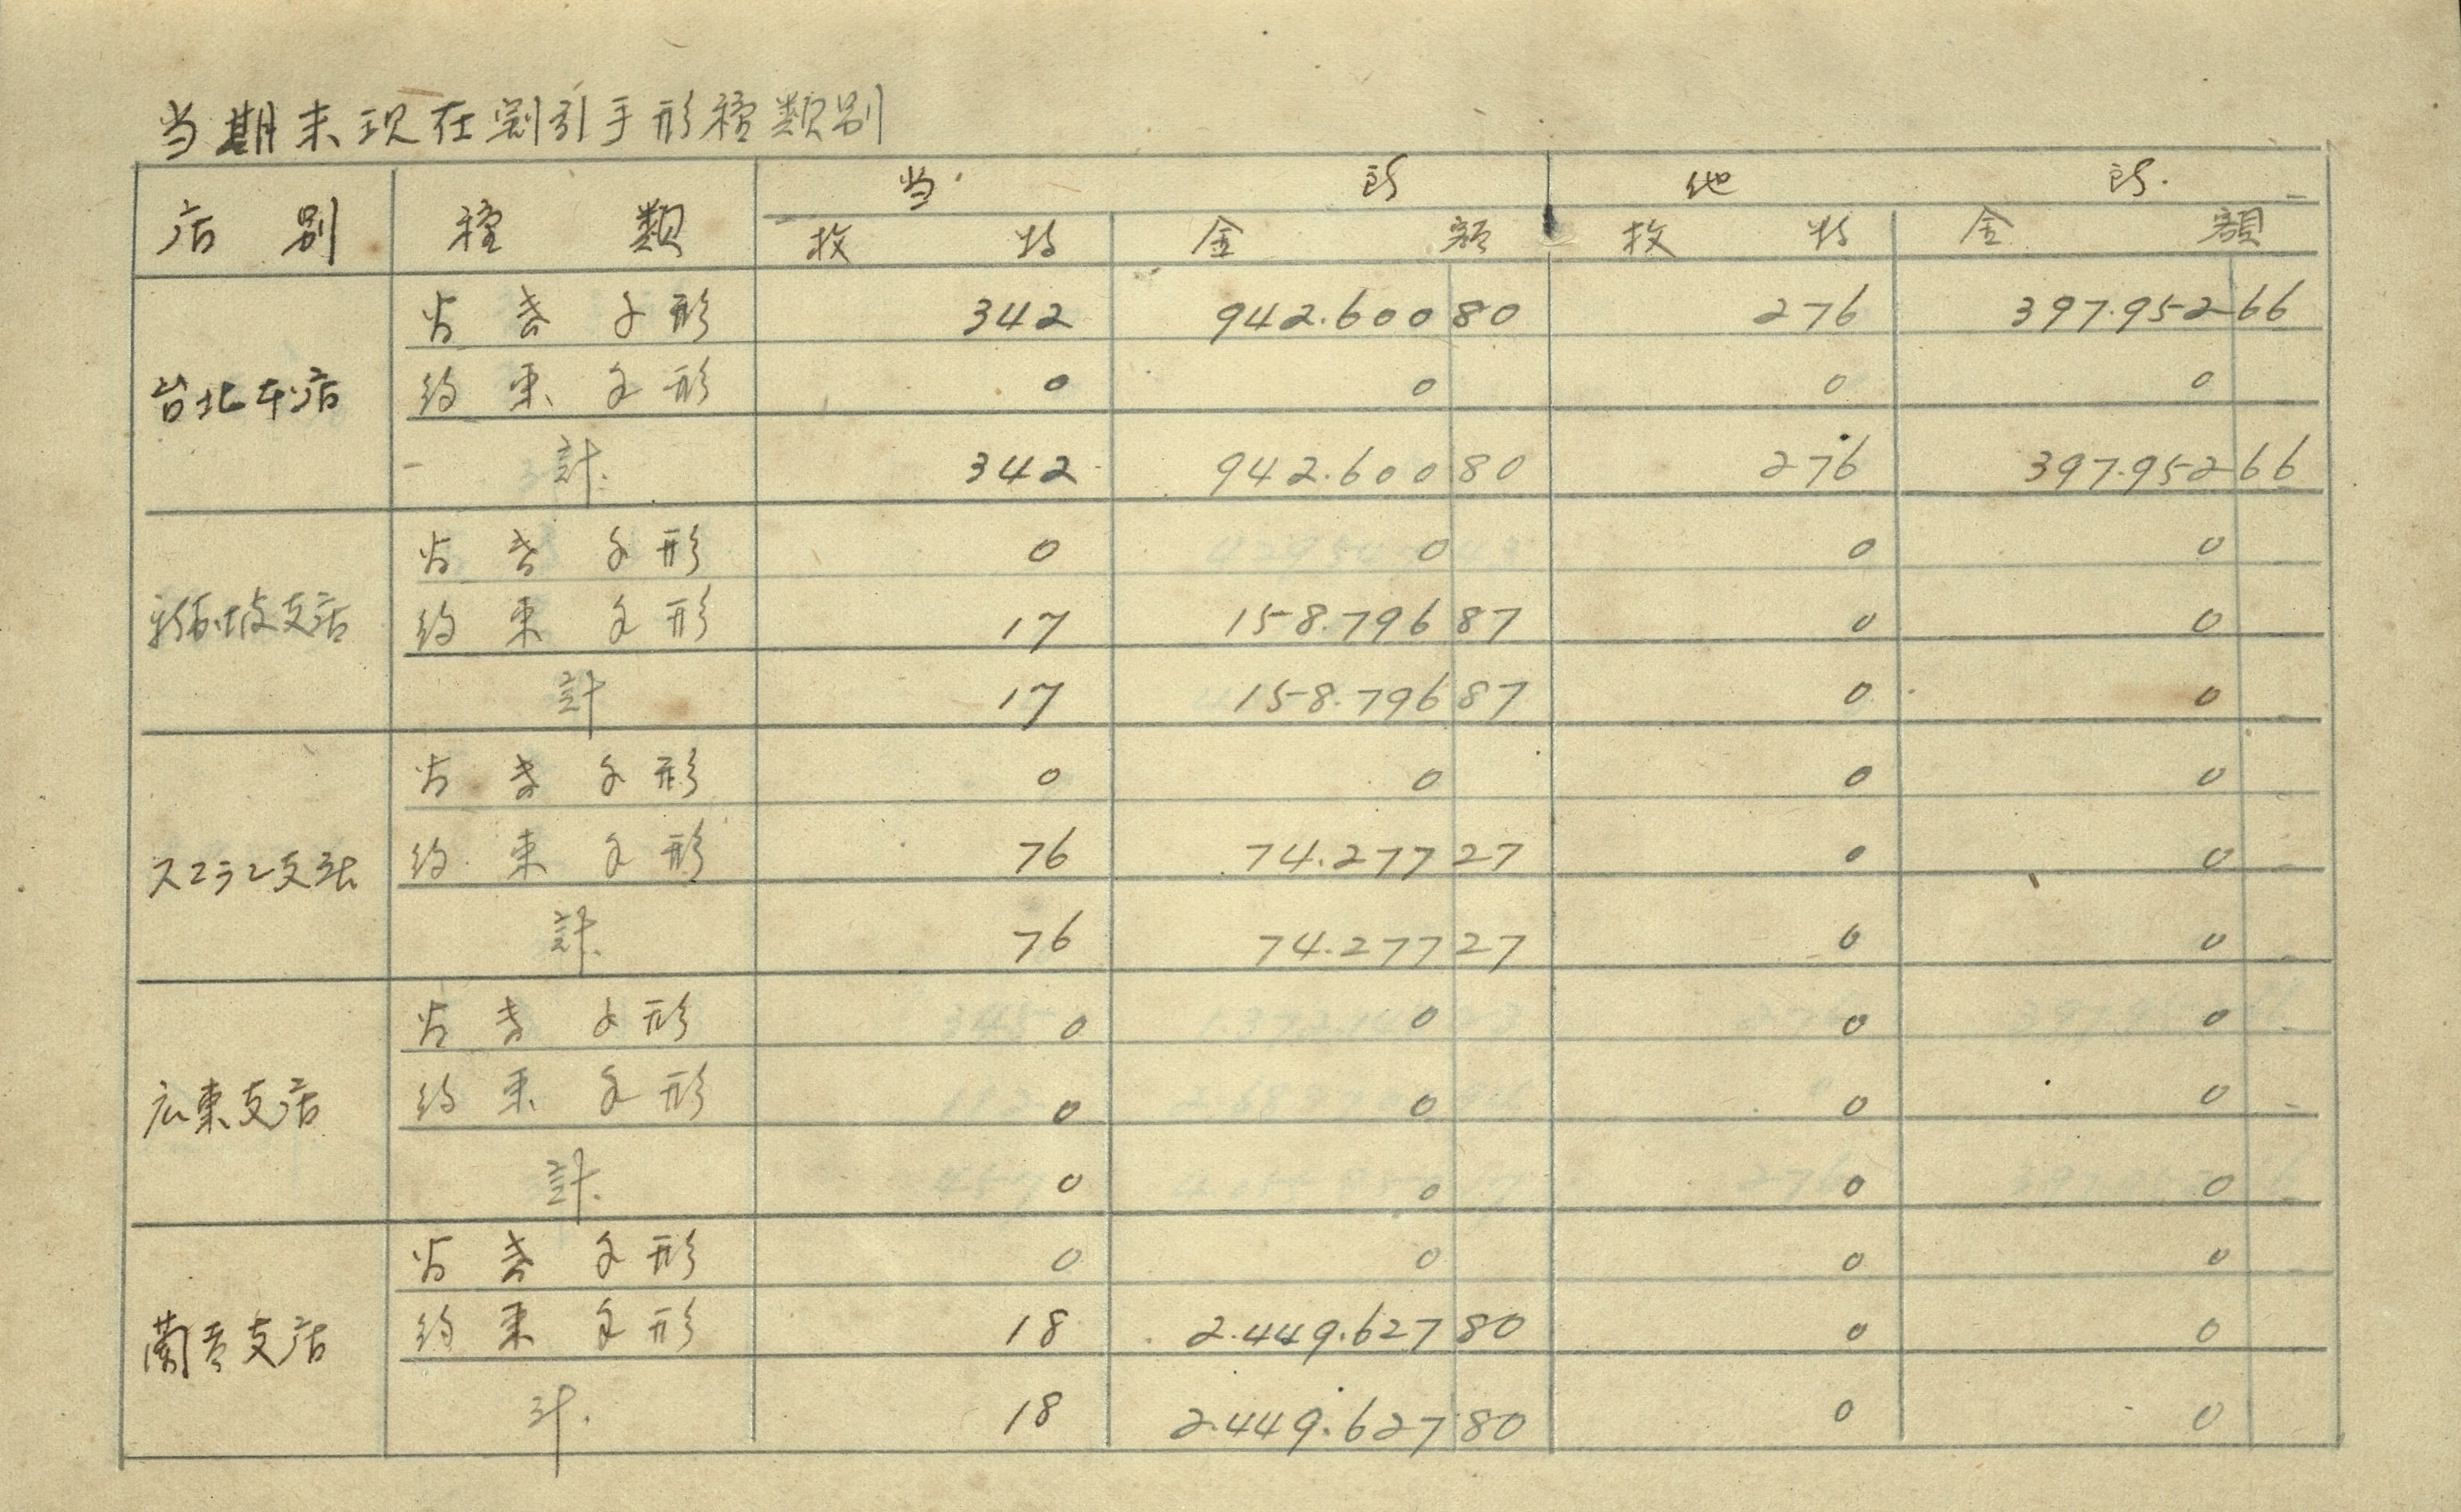 当期末現在割引手形種類別
店別 種類 当所 他所
枚数 金額 枚数 金額
台北本店
為替手形 342 942.600 80 276 397.952 66
約束手形 0 0 0 0
計 342 942.600 80 276 397.952 66
新嘉坡支店
為替手形 0 0 0 0
約束手形 17 158.796 87 0 0
計 17 158.796 87 0 0
スマラン支店
為替手形 0 0 0 0
約束手形 76 74.277 27 0 0
計 76 74.277 27 0 0
広東支店
為替手形 0 0 0 0
約束手形 0 0 0 0
計 0 0 0 0
蘭貢支店
為替手形 0 0 0 0
約束手形 18 2.449.627 80 0 0
計 18 2.449.627 80 0 0